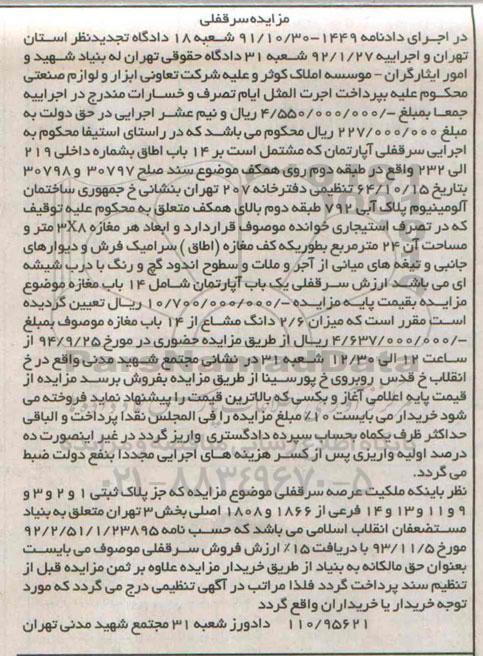 مزایده سرقفلی
در اجرای دادنامه ۱۴۴۹-۹۱/۱۰/۳۰ شعبه ۱۸ دادگاه تجدیدنظر استان
تهران و اجراییه ۹۲/۱/۲۷ شعبه ۳۱ دادگاه حقوقی تهران له بنیاد شهید و
امور ایثارگران - موسسه املاک کوثر و علیه شرکت تعاونی ابزار و لوازم صنعتی
محکوم علیه بپرداخت اجرت المثل ایام تصرف و خسارات مندرج در اجراییه
جمعا بمبلغ -/۴/۵۵۰/۰۰۰/۰۰۰ ریال و نیم عشر اجرایی در حق دولت به
مبلغ ۲۲۷/۰۰۰/۰۰۰ ریال محکوم می باشد که در راستای استیفا محکوم به
اجرایی سرقفلی آپارتمان که مشتمل است بر ۱۴ باب اطاق بشماره داخلی ۲۱۹
الی ۲۳۲ واقع در طبقه دوم روی همکف موضوع سند صلح ۳۰۷۹۷ و ۳۰۷۹۸
بتاریخ ۶۴/۱۰/۱۵ تنظیمی دفترخانه ۲۰۷ تهران بنشانی خ جمهوری ساختمان
آلومینیوم پلاک آبی ۷۹۲ طبقه دوم بالای همکف متعلق به محکوم علیه توقیف
که در تصرف استیجاری خوانده موصوف قراردارد و ابعاد هر مغازه ۳X۸ متر و
مساحت آن ۲۴ مترمربع بطوریکه کف مغازه (اطاق) سرامیک فرش و دیوارهای
جانبی و تیغه های میانی از آجر و ملات و سطوح اندود گچ و رنگ با درب شیشه
ای می باشد ارزش سرقفلی یک باب آپارتمان شامل ۱۴ باب مغازه موضوع
مزایده بقیمت پایه مزایده -/۱۰/۷۰۰/۰۰۰/۰۰۰ ریال تعیین گردیده
است مقرر است که میزان ۲/۶ دانگ مشاع از ۱۴ باب مغازه موصوف بمبلغ
-/۴/۶۳۷/۰۰۰/۰۰۰ ریال از طریق مزایده حضوری در مورخ ۹۴/۹/۲۵ از
ساعت ۱۲ الی ۱۲/۳۰ شعبه ۳۱ در نشانی مجتمع شهید مدنی واقع در خ
انقلاب خ قدس روبروی خ پورسینا از طریق مزایده بفروش برسد مزایده از
قیمت پایه اعلامی آغاز و بکسی که بالاترین قیمت را پیشنهاد نماید فروخته می
شود خریدار می بایست ۱۰٪ مبلغ مزایده را فی المجلس نقدا پرداخت و الباقی
حداکثر ظرف یکماه بحساب سپرده دادگستری واریز گردد در غیر اینصورت ده
درصد اولیه واریزی پس از کسر هزینه های اجرایی مجددا بنفع دولت ضبط
می گردد.
نظر باینکه ملکیت عرصه سرقفلی موضوع مزایده که جز پلاک ثبتی ۱ و ۲ و ۳ و
۹ و ۱۱ و ۱۳ و ۱۴ فرعی از ۱۸۶۶ و ۱۸۰۸ اصلی بخش ۳ تهران متعلق به بنیاد
مستضعفان انقلاب اسلامی می باشد که حسب نامه ۹۲/۲/۵۱/۱/۲۳۸۹۵
مورخ ۹۳/۱۱/۵ با دریافت ۱۵٪ ارزش فروش سرقفلی موصوف می بایست
بعنوان حق مالکانه به بنیاد از طریق خریدار مزایده علاوه بر ثمن مزایده قبل از
تنظیم سند پرداخت گردد فلذا مراتب در آگهی تنظیمی درج می گردد که مورد
توجه خریدار یا خریداران واقع گردد
۱۱۰/۹۵۶۲۱ دادورز شعبه ۳۱ مجتمع شهید مدنی تهران
ParsNamadData
۰۲۱-۸۸۳۴۹۶۷۰-۵